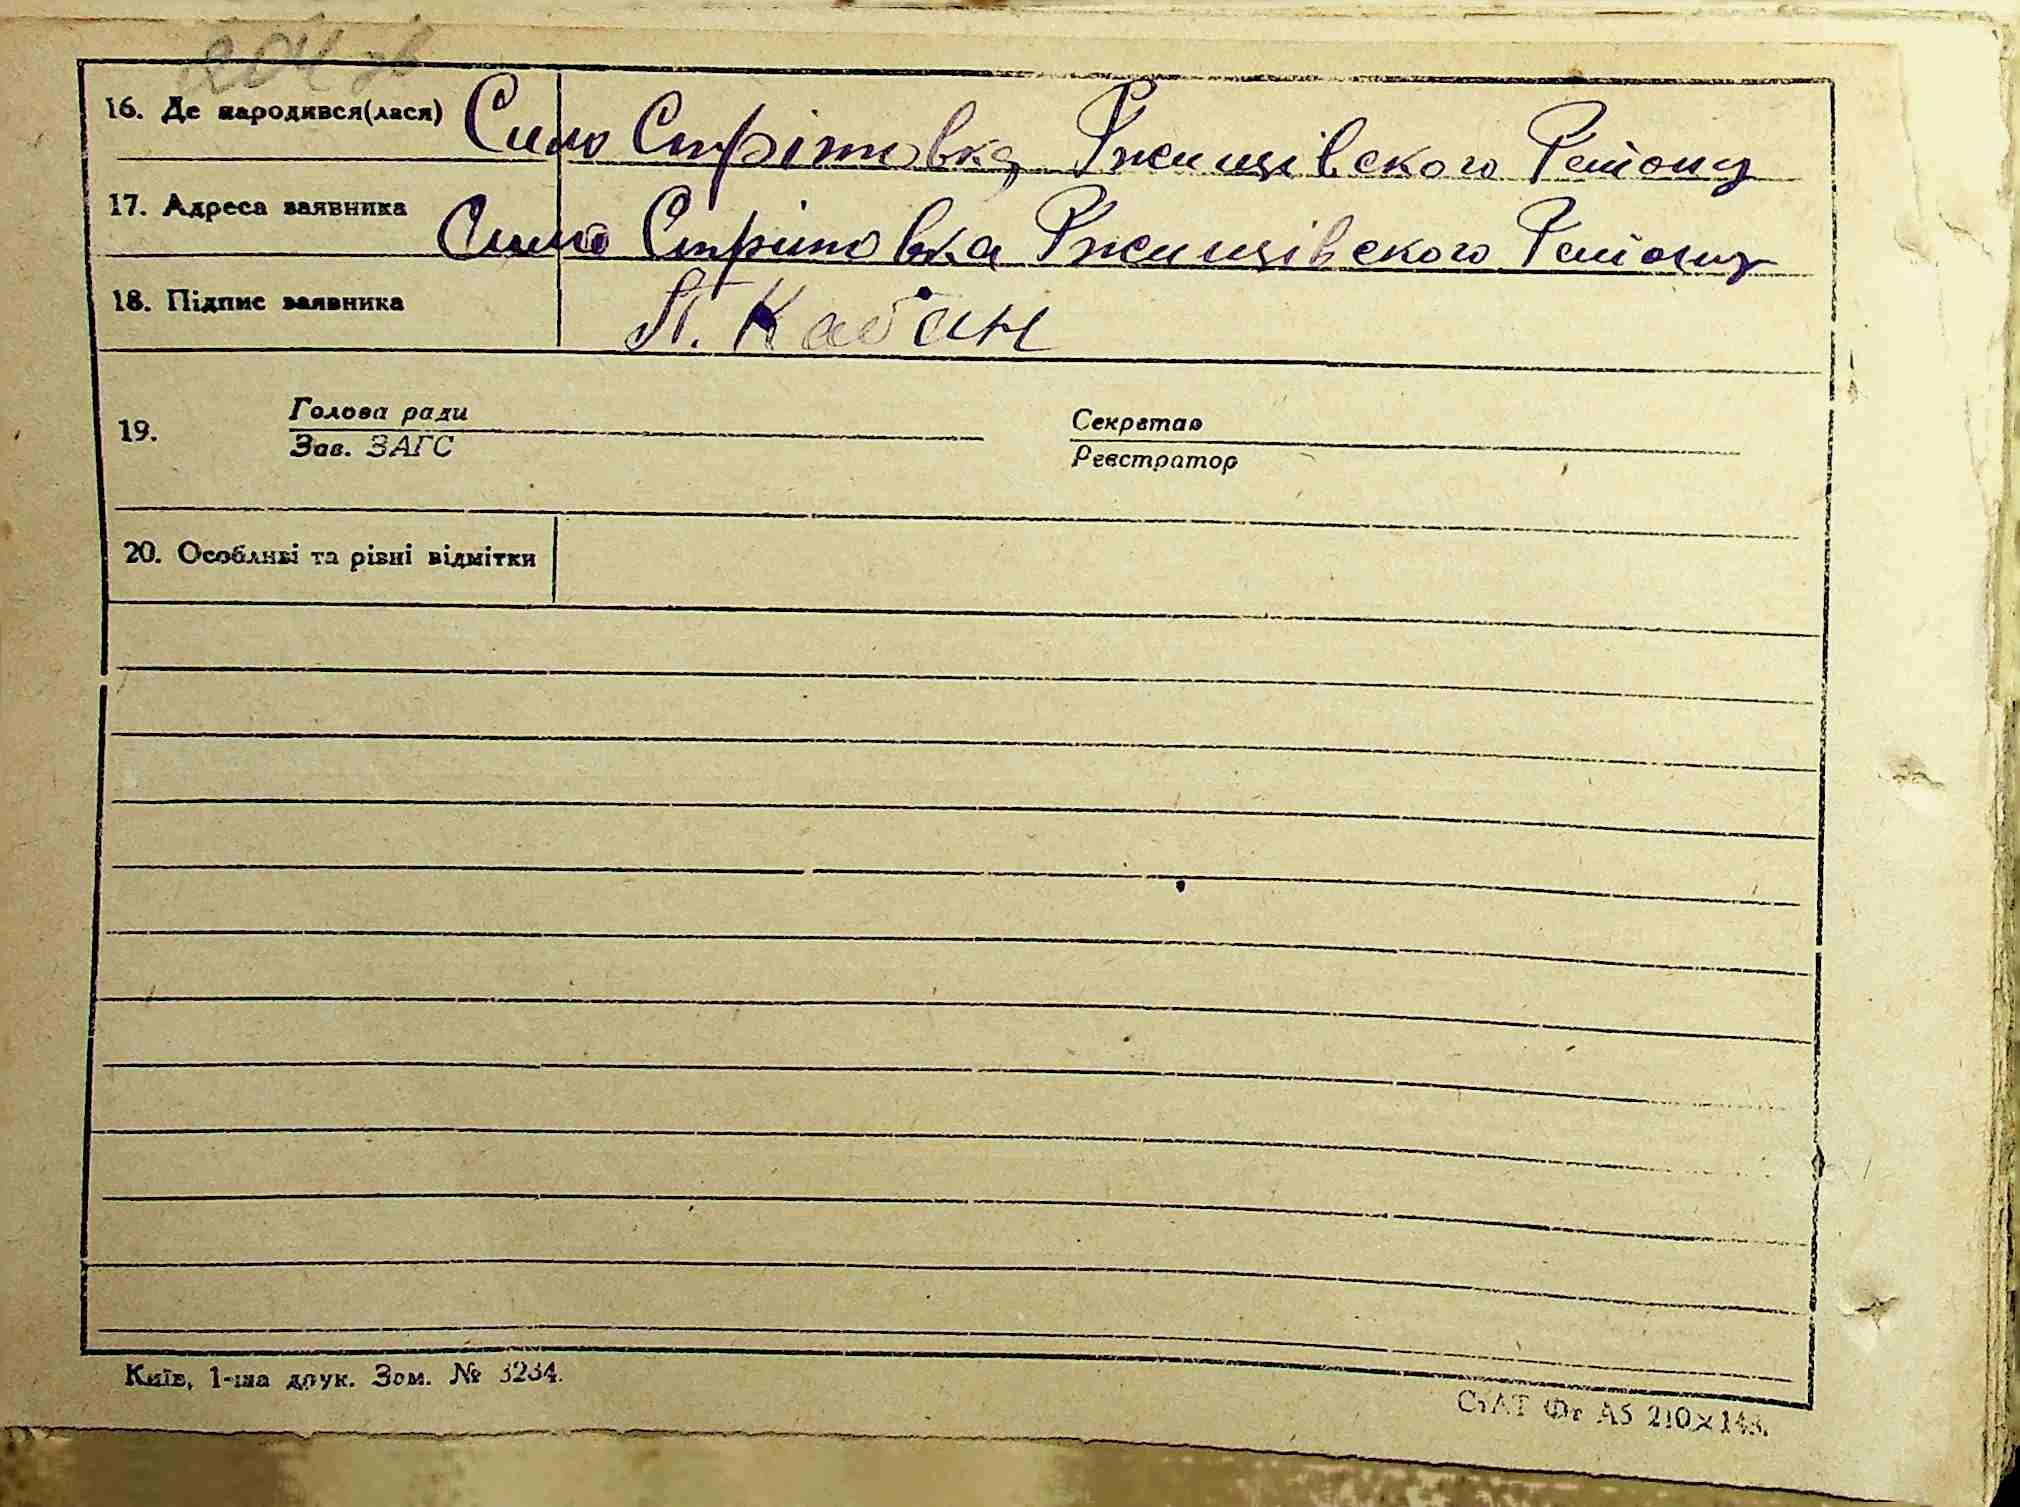 204 зв
16. Де народився(лася) Сило Стрітовка Ржищівского Району
17. Адреса заявника Сило Стрітовка Ржищівского Району
18. Підпис заявника П. Кабан
19. Голова ради Секретар
Зав. ЗАГС Реєстратор
20. Особливі та різні відмітки
Київ, 1-ша друк. Зам. № 3234.
СтАТ Фг А5 210×148.